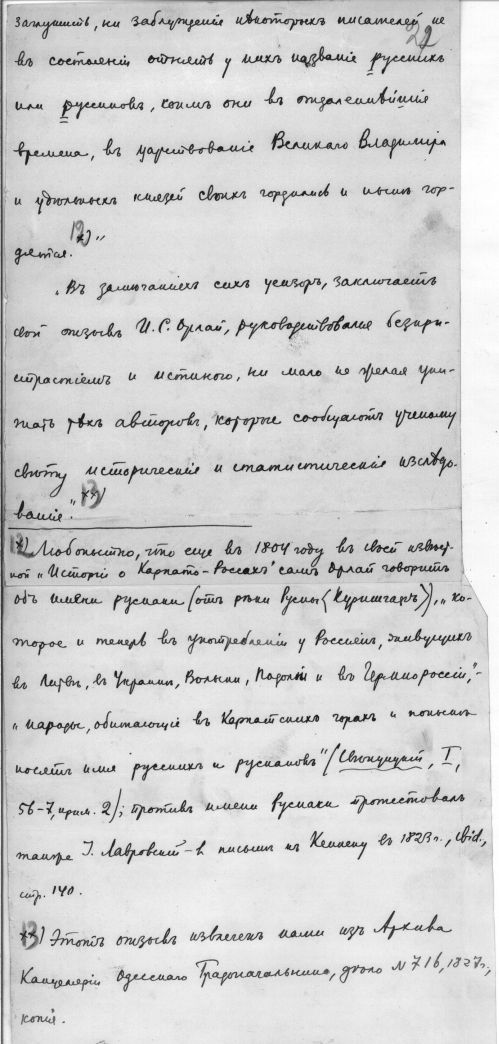 заглушить, ни заблужденія нѣкоторыхъ писателей не
22
въ состояніи отнять у нихъ названіе русскихъ
или руссиновъ, коимъ они въ отдаленнѣйшія
времена, въ царствованіе Великаго Владиміра
и удѣльныхъ князей своихъ гордились и нынѣ гор-
дятся. 12 *) "
"Въ замѣчаніяхъ сихъ цензоръ, заключаетъ
свой отзывъ И. С. Орлай, руководствовался безпри-
страстіемъ и истиною, ни мало не желая уни-
жать тѣхъ авторовъ, которые сообщаютъ ученому
свѣту историческія и статистическія изслѣдо-
ванія". 13 **)
12 *) Любопытно, что еще въ 1804 году въ своей извѣст-
ной "Исторіи о Карпато-Россахъ" самъ Орлай говоритъ
объ имени русняки (отъ рѣки Русны), "ко-
торое и теперь въ употребленіи у Россіянъ, живущихъ
въ Литвѣ, въ Украинѣ, Волыни, Подоліи и въ Червноросіи",-
"народы, обитающіе въ Карпатскихъ горахъ и понынѣ
носятъ имя русскихъ и русняковъ" (Свѣнцицкій, I,
56-7, прим. 2); противъ имени русняки протестовалъ
также І. Лавровскій въ письмѣ къ Кеппену въ 1823 г., ibid.,
стр. 140.
13 **) Этотъ отзывъ извлеченъ нами изъ Архива
Канцеляріи Одесскаго Градоначальника, дѣло N 716, 1827 г.,
копія.